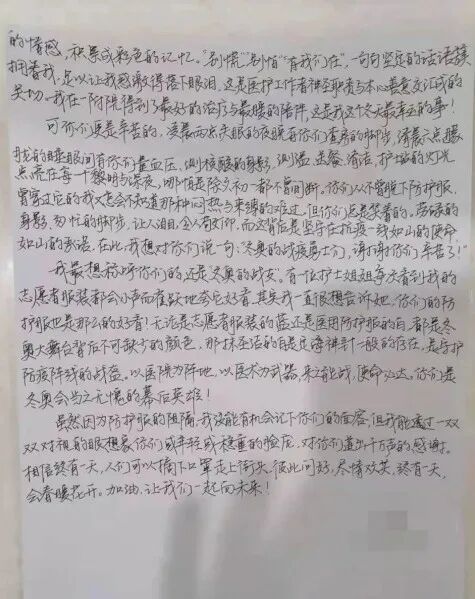 的情感，积累成彩色的记忆。"别慌""别怕""有我们在"，一句句坚定的话语簇
拥着我，足以让我感激得落下眼泪，这是医护工作者神圣职责与本心善意交汇成的
关切。我在一附院得到了最好的治疗与最暖的陪伴，这是我这个冬天最幸运的事！
可你们更是辛苦的，凌晨两点失眠的夜晚有你们查房的脚步，清晨六点朦
胧的睡眼间有你们量血压、测核酸的身影，测温、送餐、清洁，护地的灯光
点亮在每个黎明与深夜，哪怕是除夕初一都不曾间断。你们从不曾脱下防护服，
曾穿过它的我又怎会不知道那种闷热与束缚的难过，但你们总是笑着的，劳碌的
身影，匆忙的脚步，让人泪目，令人敬仰，而这背后是坚守在抗疫一线如山的使命，
如山的承诺。在此，我想对你们说一句：冬奥的战疫勇士们，谢谢，你们辛苦了！"
我最想称呼你们的，还是冬奥的战友。有一位护士姐姐每次看到我的
志愿者服装都会小声而雀跃地夸它好看，其实我一直很想告诉她，你们的防
护服也是那么的好看！无论是志愿者服装的蓝还是医用防护服的白，都是冬
奥大舞台背后不可缺少的颜色，那抹圣洁的白是定海神针一般的存在，是守护
防疫阵线的战盔。以医院为阵地，以医术为武器，来之能战，使命必达，你们是
冬奥会当之无愧的幕后英雄！
虽然因为防护服的阻隔，我没能有机会记下你们的面容，但我能透过一双
双对视的眼想象你们或年轻或稳重的脸庞，对你们道出千万声的感谢。
相信终有一天，人们可以摘下口罩走上街头，彼此问好，尽情欢笑，终有一天，
会春暖花开。加油，让我们一起向未来！